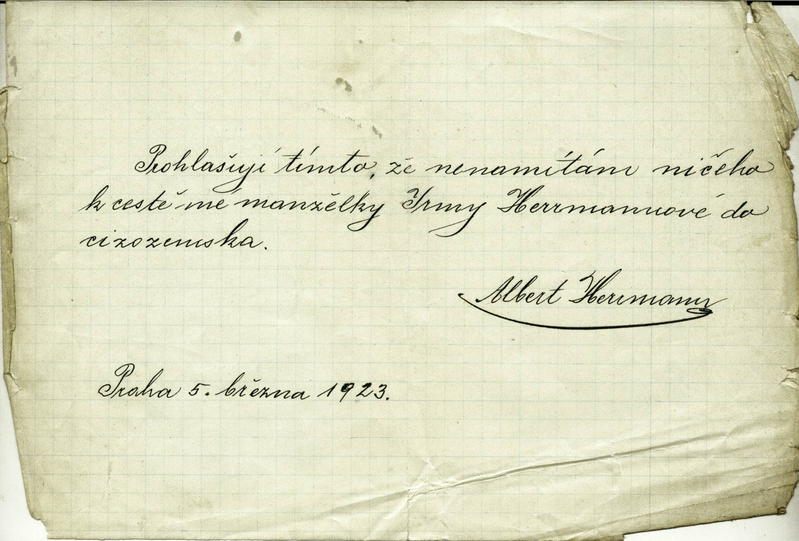 Prohlašuji tímto, že nenamítám ničeho
k cestě mé manželky Irmy Herrmannové do
cizozemska.
Albert Herrmann
Praha 5. března 1923.